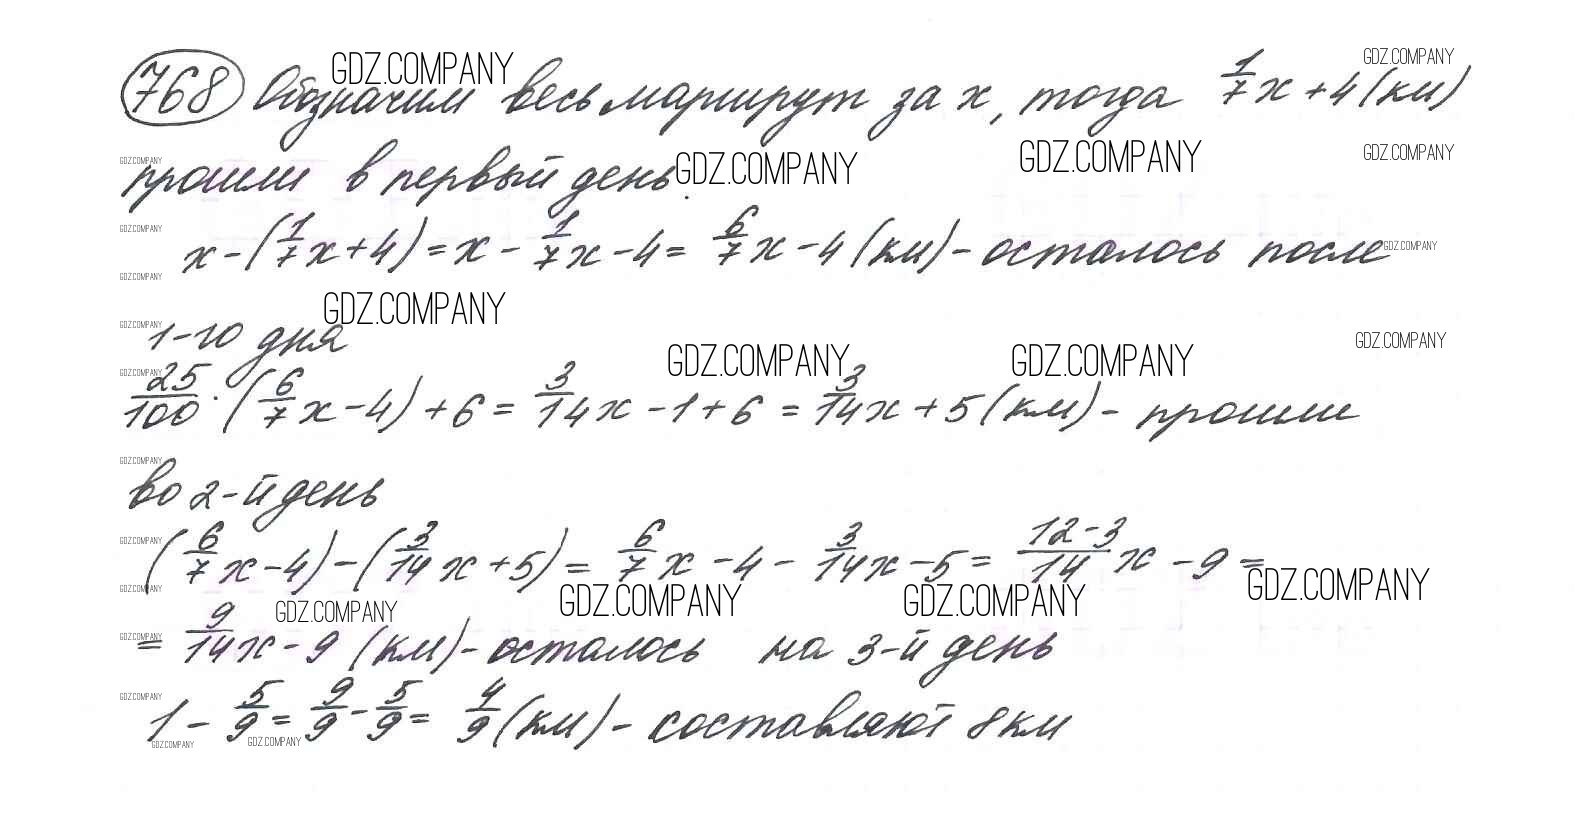 768 Обозначим весь маршрут за x, тогда 1/7 x + 4 (км)
прошли в первый день.
x - (1/7 x + 4) = x - 1/7 x - 4 = 6/7 x - 4 (км) - осталось после
1-го дня
25/100 · (6/7 x - 4) + 6 = 3/14 x - 1 + 6 = 3/14 x + 5 (км) - прошли
во 2-й день
(6/7 x - 4) - (3/14 x + 5) = 6/7 x - 4 - 3/14 x - 5 = 12-3/14 x - 9 =
= 9/14 x - 9 (км) - осталось на 3-й день
1 - 5/9 = 9/9 - 5/9 = 4/9 (км) - составляют 8 км
GDZ.COMPANY